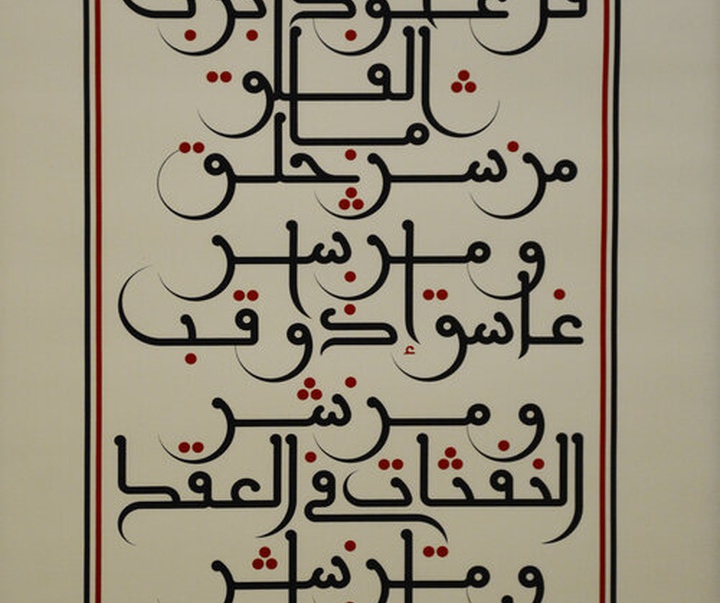 قل أعوذ برب
الفلق
من شر ما خلق
و من شر
غاسق إذا وقب
و من شر
النفثات في العقد
و من شر